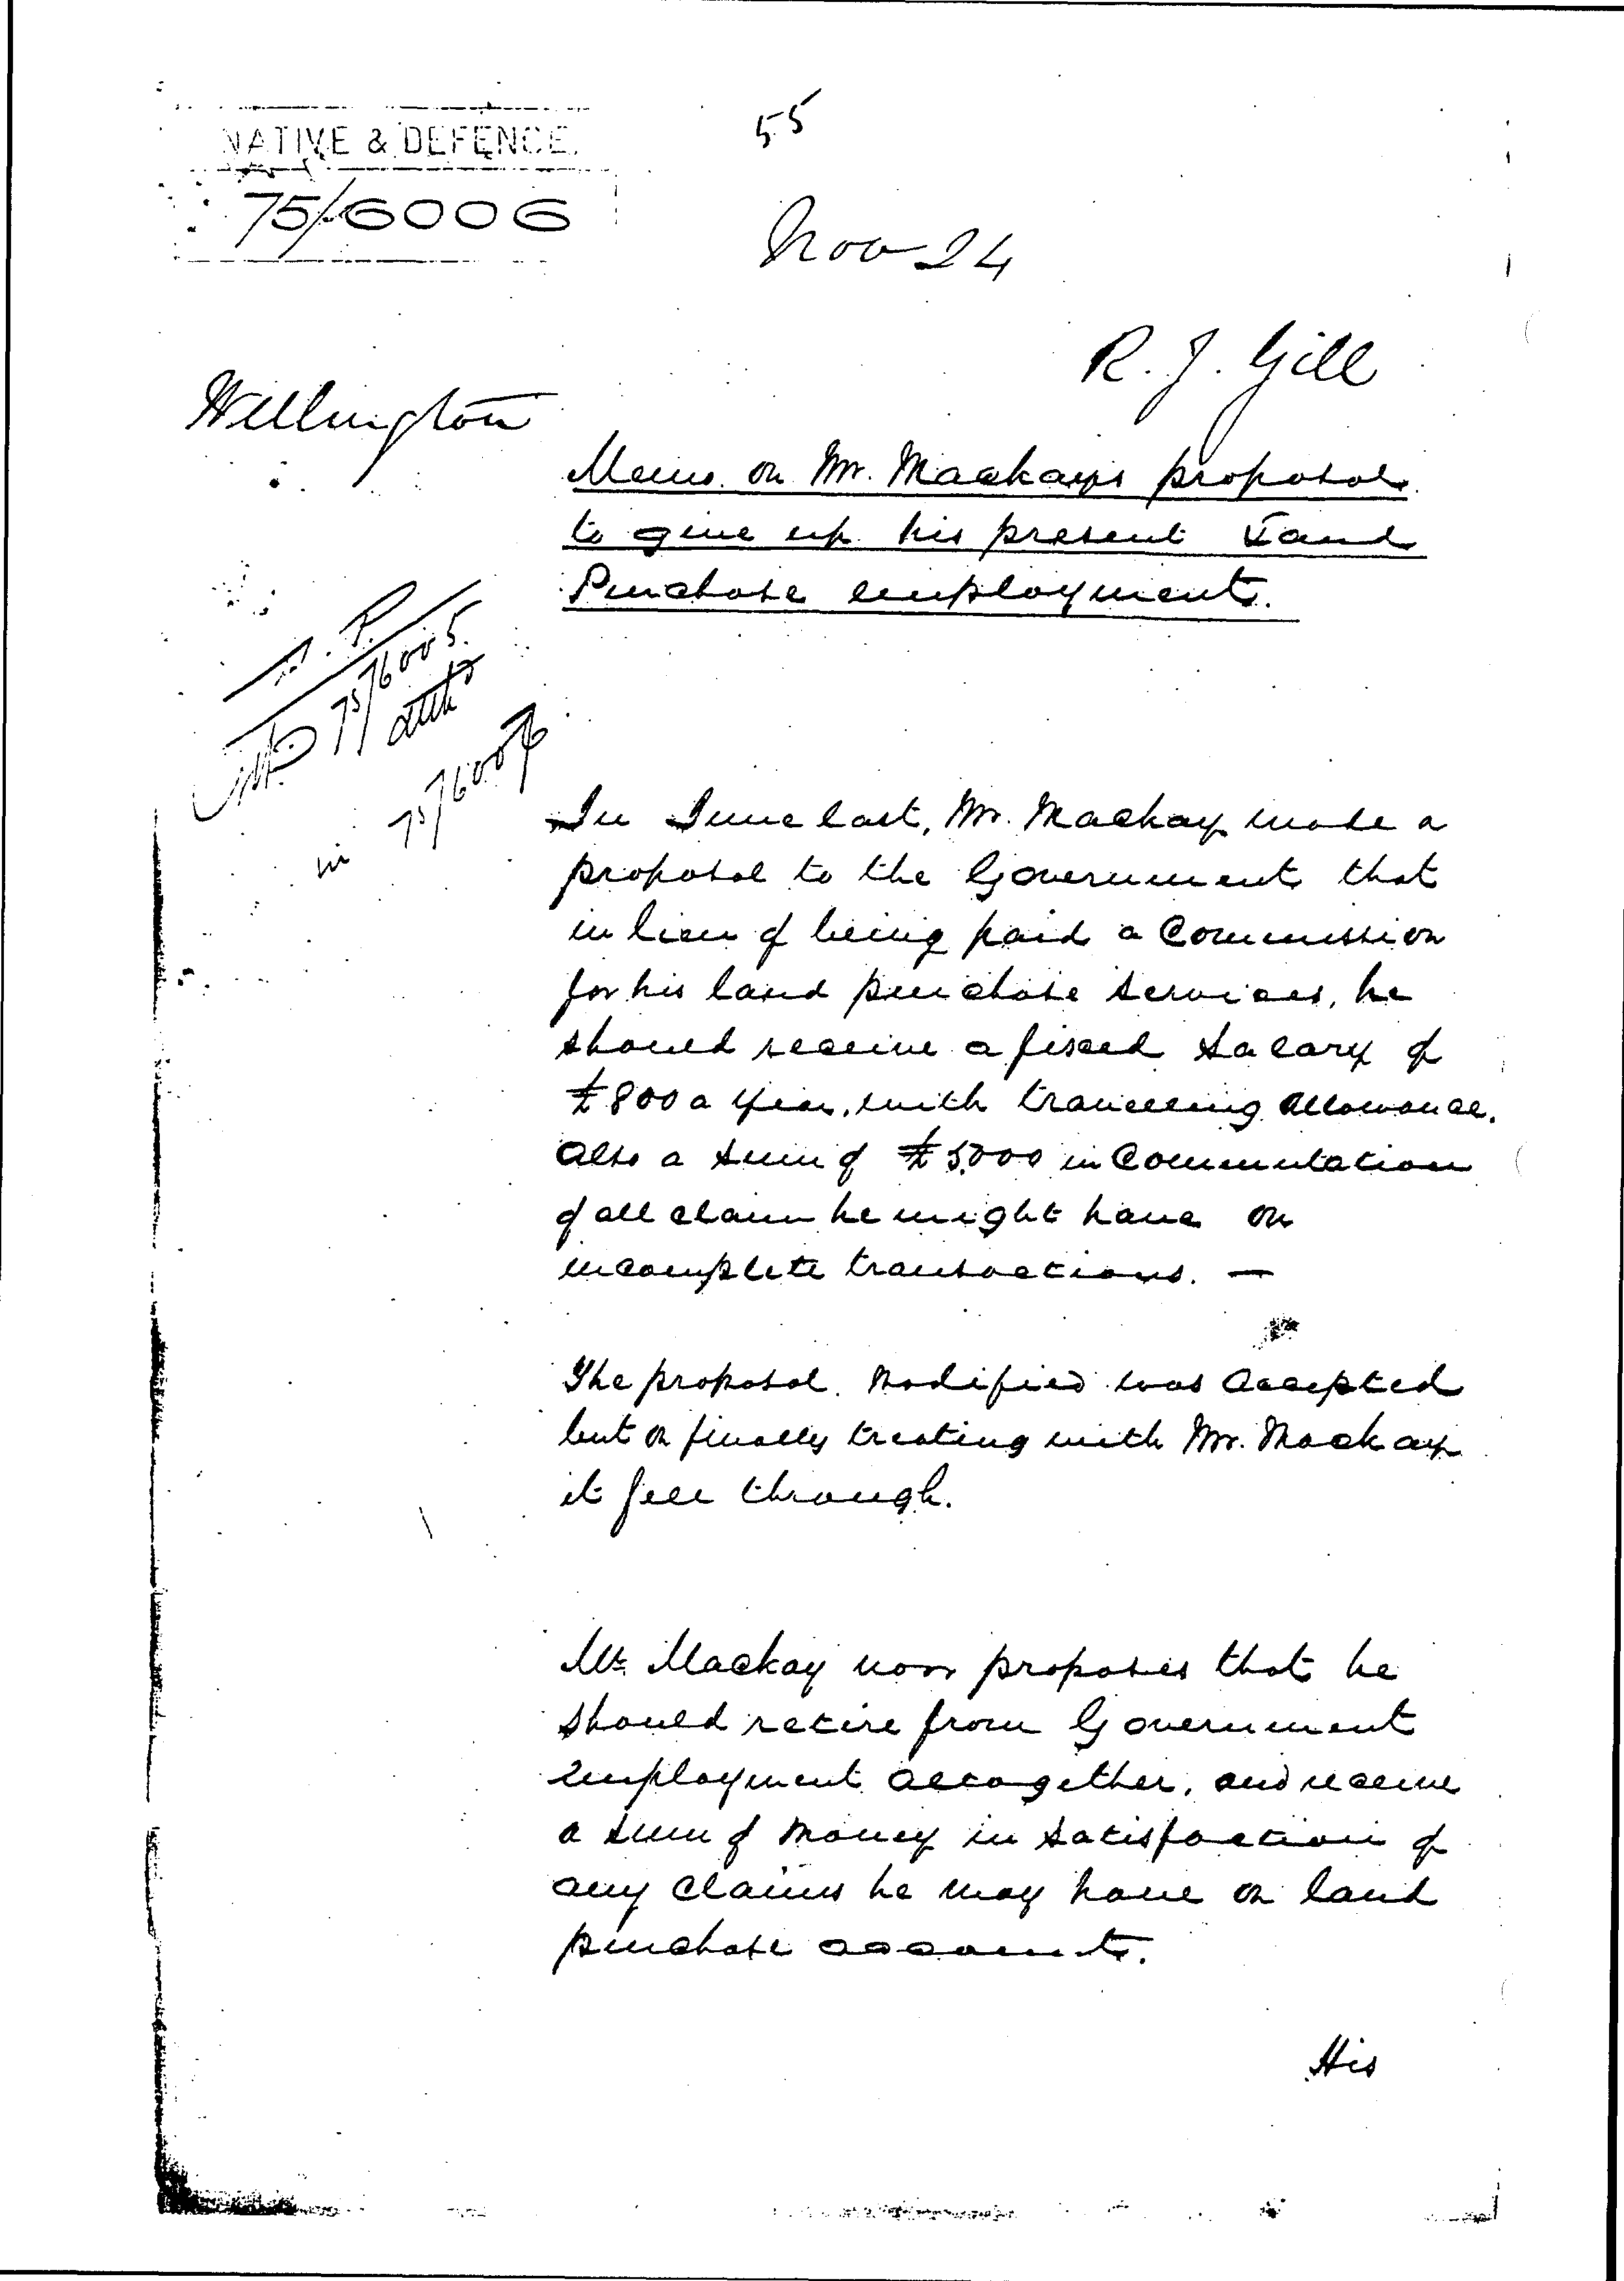 55
NATIVE & DEFENCE.
75/6006
Nov 24
R. J. Gill
Wellington
Memo. on Mr. Mackay's proposal
to give up his present Land
Purchase employment.
75/6005.
in 75/6007
In June last, Mr. Mackay made a
proposal to the Government that
in lieu of being paid a Commission
for his land purchase services, he
should receive a fixed salary of
£800 a year, with travelling allowance.
Also a sum of £5000 in Commutation
of all claim he might have on
incomplete transactions. —
The proposal. Modified was accepted
but on finally treating with Mr. Mackay
it fell through.
Mr. Mackay now proposes that he
should retire from Government
employment altogether, and receive
a sum of money in satisfaction of
any claims he may have on land
purchase account.
His